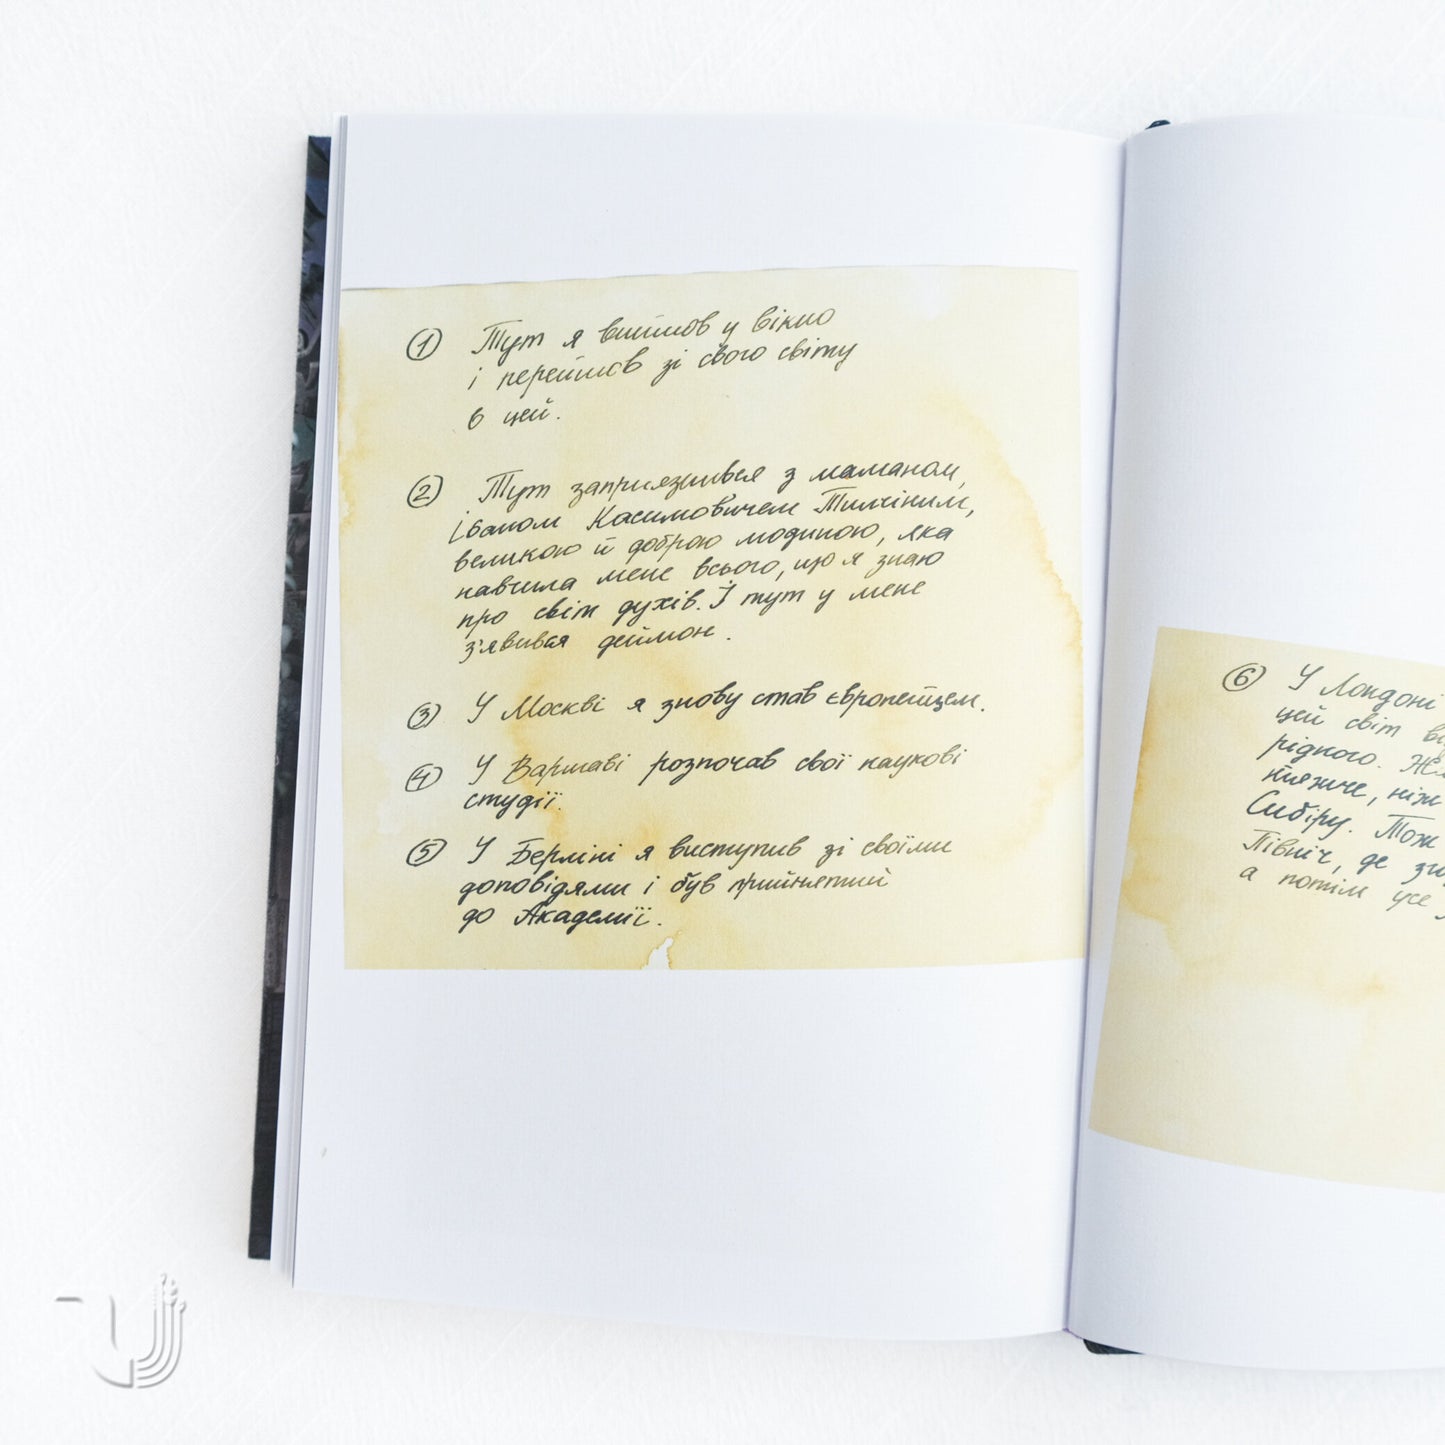 1 Тут я вийшов у вікно
і перейшов зі свого світу
в цей.
2 Тут заприязнився з шаманом,
Іваном Касимовичем Тимкіним,
великою й доброю людиною, яка
навчила мене всього, що я знаю
про світ духів. І тут у мене
з'явився деймон.
3 У Москві я знову став європейцем.
4 У Варшаві розпочав свої наукові
студії.
5 У Берліні я виступив зі своїми
доповідями і був прийнятий
до Академії.
6 У Лондоні
цей світ ві
рідного.
тяжче, ніж
Сибіру. Тож
Північ, де
а потім усе